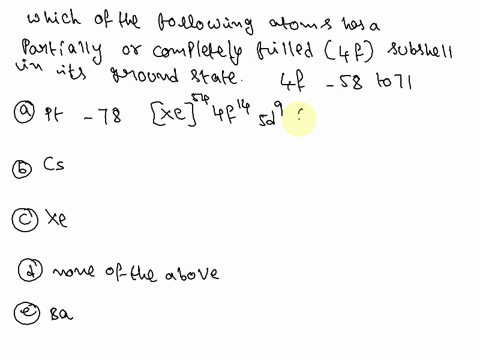 which of the following atoms has a
Partially or completely filled (4f) subshell
in its ground state. 4f - 58 to 71
(a) Pt - 78 [Xe]54 4f14 5d9
(b) Cs
(c) Xe
(d) none of the above
(e) Ba